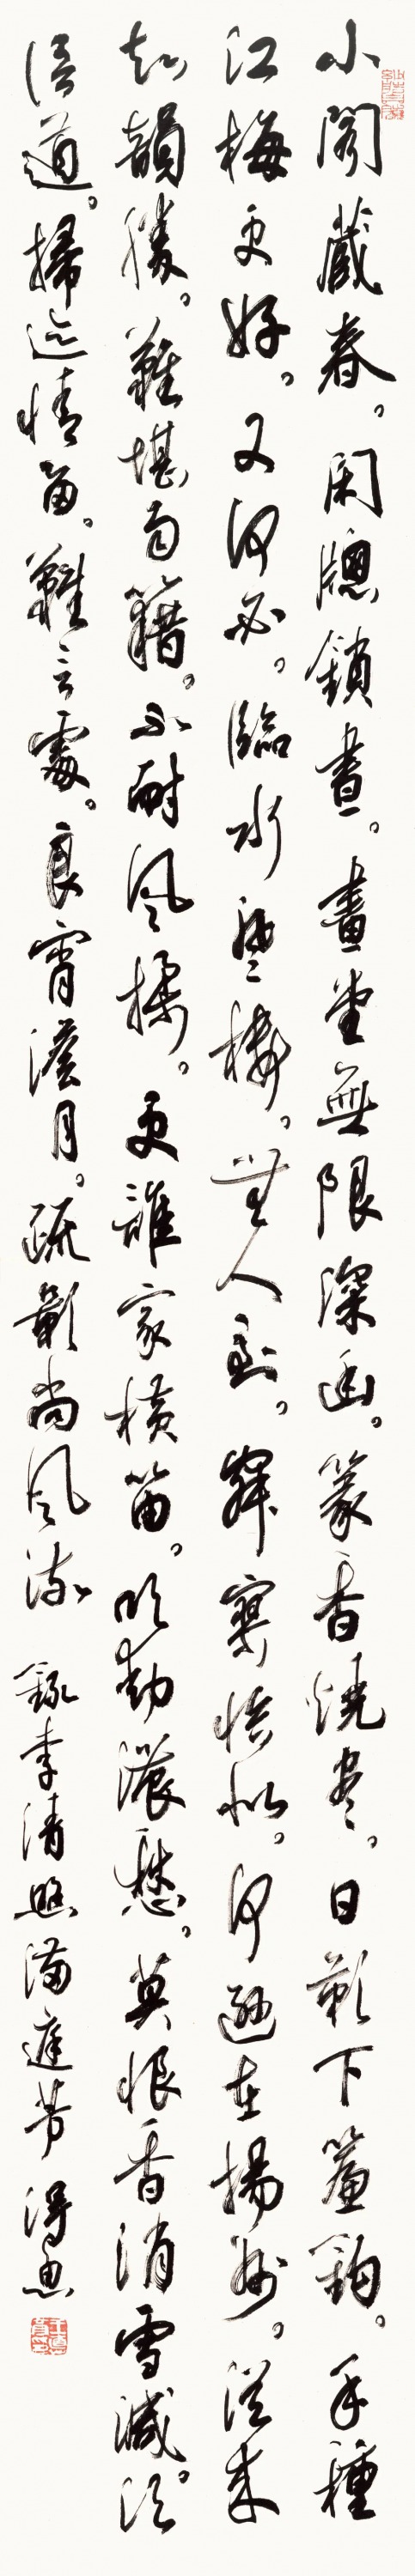 小閣藏春。閑窗鎖晝。畫堂無限深幽。篆香燒盡。日影下簾鉤。手種
江梅更好。又何必。臨水登樓。無人到。寂寥恰似。何遜在揚州。從來
知韻勝。難堪雨藉。不耐風揉。更誰家橫笛。吹動濃愁。莫恨香消雪減。須
信道。掃迹情留。難言處。良宵淡月。疏影尚風流
錄李清照滿庭芳 得魚